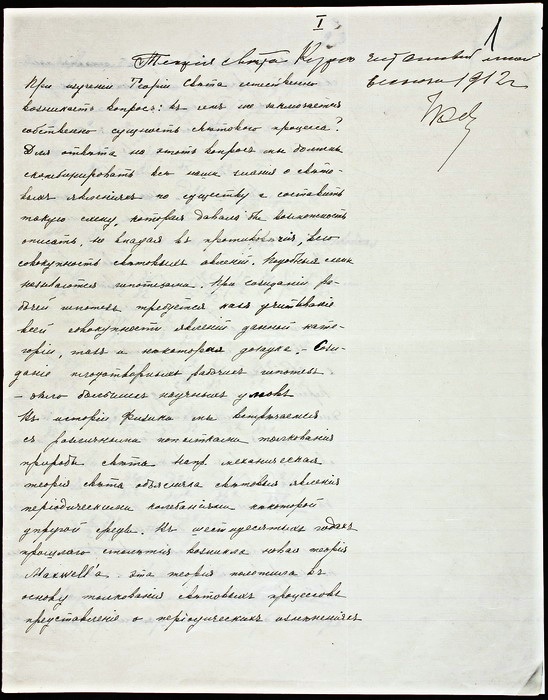 I
1
Теорія свѣта Курсъ читанный мною
весною 1912 г
При изученіи Теоріи Свѣта естественно
возникаетъ вопросъ: въ чемъ же заключается
собственно сущность свѣтового процесса?
Для отвѣта на этотъ вопросъ мы должны
скомбинировать всѣ наши знанія о свѣто-
выхъ явленіяхъ по существу и составить
такую схему, которая давала бы возможность
описать, не впадая въ противорѣчія, всю
совокупность свѣтовыхъ явленій. Подобныя схемы
называются гипотезами. При созиданіи ра-
бочей гипотезы требуется какъ учитываніе
всей совокупности явленій данной кате-
горіи, такъ и некоторая догадка. Сози-
даніе плодотворныхъ рабочихъ гипотезъ
- дѣло большихъ научныхъ умовъ
Въ исторіи физики мы встрѣчаемся
съ различными попытками толкованія
природы свѣта. Напр. механическая
теорія свѣта объясняла свѣтовыя явленія
періодическими колебаніями некоторой
упругой среды. Въ шестидесятыхъ годахъ
прошлаго столѣтія возникла новая теорія
Maxwell'a. Эта теорія положила въ
основу толкованія свѣтовыхъ процессовъ
представленіе о періодическихъ измѣненіяхъ